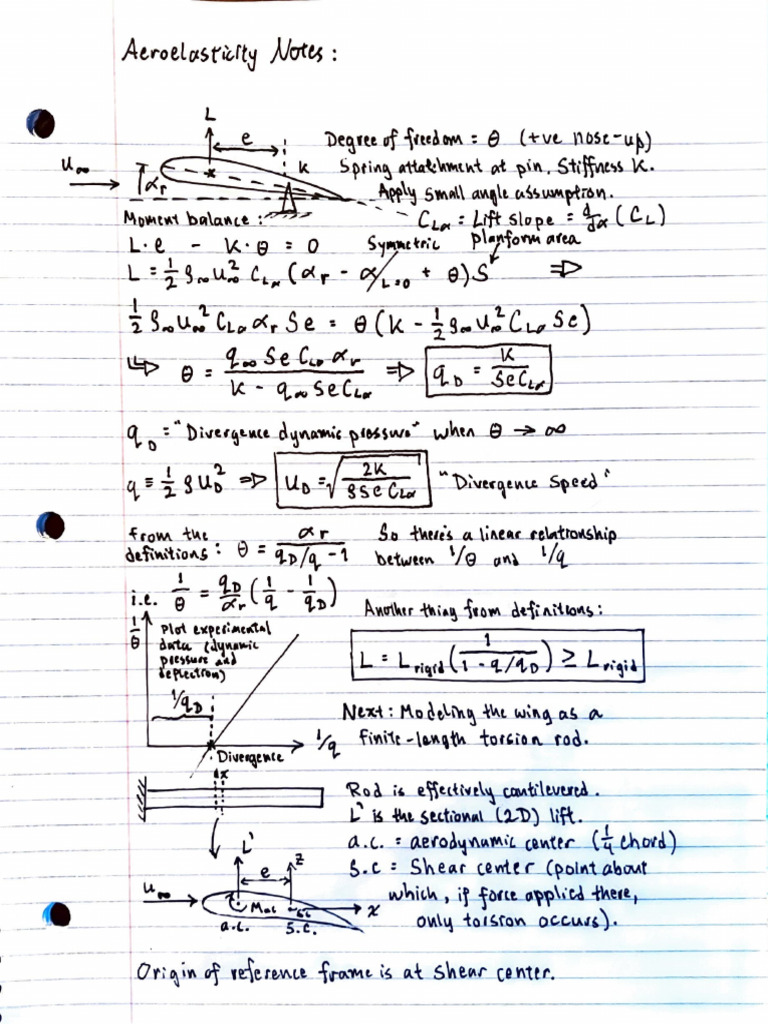 Aeroelasticity Notes:
L
e
Degree of freedom = θ (+ve nose-up)
U∞
αr
K
Spring attatchment at pin, Stiffness K.
Apply small angle assumption.
Moment balance:
CLα = Lift slope = d/dα (CL)
L·e - K·θ = 0
Symmetric
planform area
L = 1/2 ρ∞ U∞² CLα (αr - α L=0 + θ) S ⇒
1/2 ρ∞ U∞² CLα αr Se = θ (K - 1/2 ρ∞ U∞² CLα Se)
↳ θ = q∞ Se CLα αr / (K - q∞ Se CLα) ⇒ qD = K / (Se CLα)
qD = "Divergence dynamic pressure" when θ → ∞
q ≡ 1/2 ρ UD² ⇒ UD = √(2K / (ρ Se CLα)) "Divergence Speed"
from the
definitions: θ = αr / (qD/q - 1)
So there's a linear relationship
between 1/θ and 1/q
i.e. 1/θ = qD/αr (1/q - 1/qD)
Another thing from definitions:
1/θ
Plot experimental
data (dynamic
pressure and
deflection)
L = Lrigid (1 / (1 - q/qD)) ≥ Lrigid
1/qD
Next: Modeling the wing as a
finite-length torsion rod.
1/q
Divergence
Rod is effectively cantilevered.
L' is the sectional (2D) lift.
a.c. = aerodynamic center (1/4 chord)
S.C = Shear center (point about
which, if force applied there,
only torsion occurs).
L'
e
z
U∞
Mac
x
a.c.
S.C.
Origin of reference frame is at shear center.